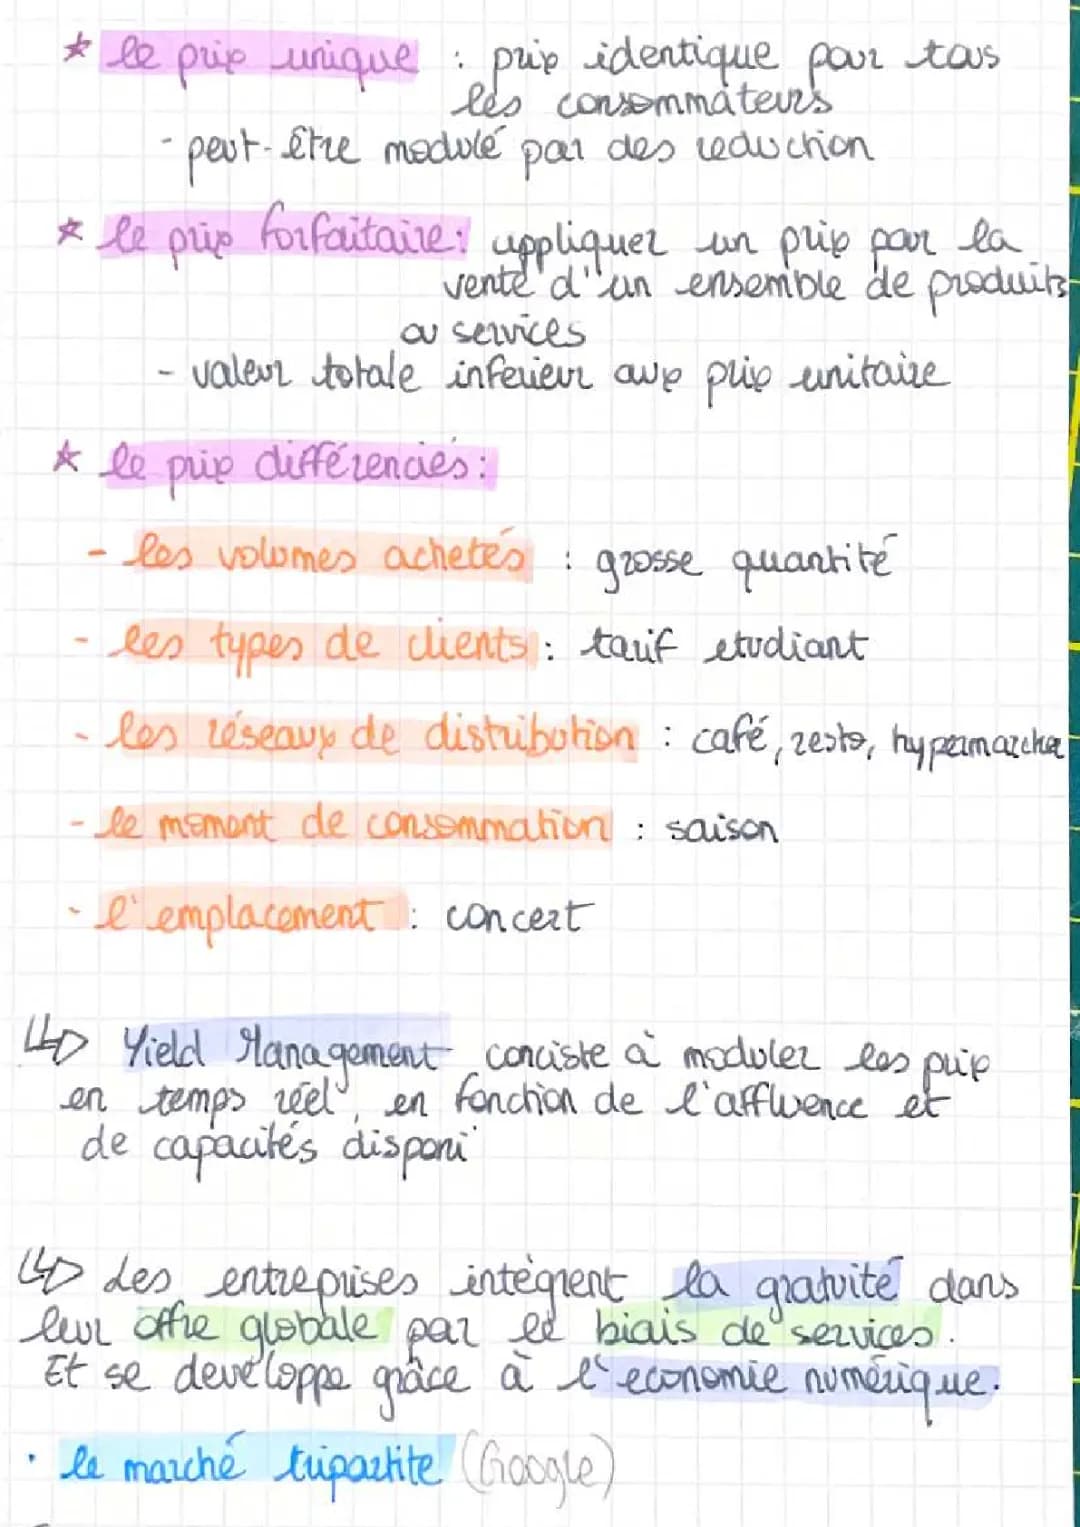 * le prix unique : prix identique pour tous
les consommateurs
- peut-être modulé par des reduction
* le prix forfaitaire: appliquer un prix par la
vente d'un ensemble de produits
ou services
- valeur totale inferieur aux prix unitaire
* le prix différenciés:
- les volumes achetés : grosse quantité
- les types de clients: tarif etudiant
- les réseaux de distribution : café, resto, hypermarcher
- le moment de consommation : saison
- l'emplacement : concert
↳ Yield Management conciste à moduler les prix
en temps réel, en fonction de l'affluence et
de capacités disponi
↳ Les entreprises intègrent la gratuité dans
leur offre globale par le biais de services.
Et se développe grâce à l'economie numérique.
· le marché tripartite (Google)